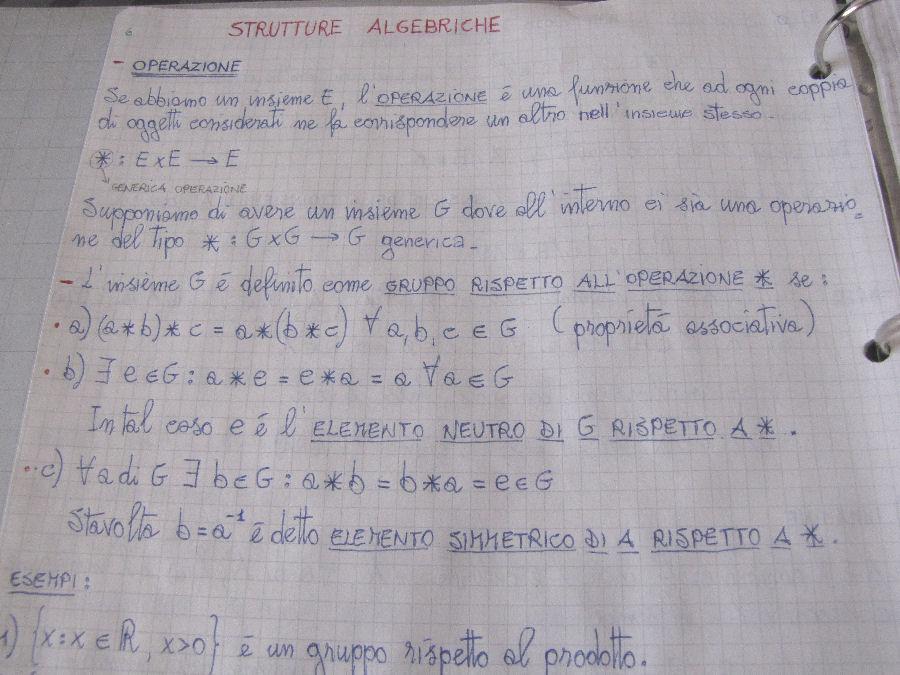 6
STRUTTURE ALGEBRICHE
- OPERAZIONE
Se abbiamo un insieme E, l'OPERAZIONE é una funzione che ad ogni coppia
di oggetti considerati ne fa corrispondere un altro nell'insieme stesso.
* : E x E → E
GENERICA OPERAZIONE
Supponiamo di avere un insieme G dove all'interno ci sia una operazio=
ne del tipo * : G x G → G generica.
- L'insieme G é definito come GRUPPO RISPETTO ALL'OPERAZIONE * se :
• a) (a * b) * c = a * (b * c) ∀ a, b, c ∈ G (proprietá associativa)
• b) ∃ e ∈ G : a * e = e * a = a ∀ a ∈ G
In tal caso e é l'ELEMENTO NEUTRO DI G RISPETTO A * .
• c) ∀ a di G ∃ b ∈ G : a * b = b * a = e ∈ G
Stavolta b = a⁻¹ é detto ELEMENTO SIMMETRICO DI A RISPETTO A * .
ESEMPI :
1) {x : x ∈ ℝ, x > 0} é un gruppo rispetto al prodotto.